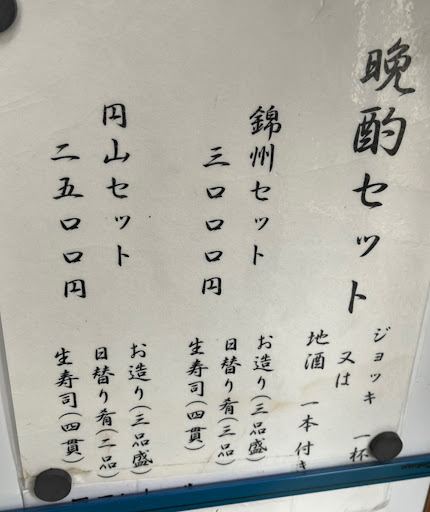 晩酌セット
ジョッキ 一杯
又は
地酒 一本付き
錦州セット
三〇〇〇円
お造り(三品盛)
日替り肴(三品)
生寿司(四貫)
円山セット
二五〇〇円
お造り(三品盛)
日替り肴(二品)
生寿司(四貫)